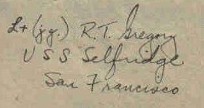 Lt (jg.) R.T. Gregory
U S S Selfridge
San Francisco